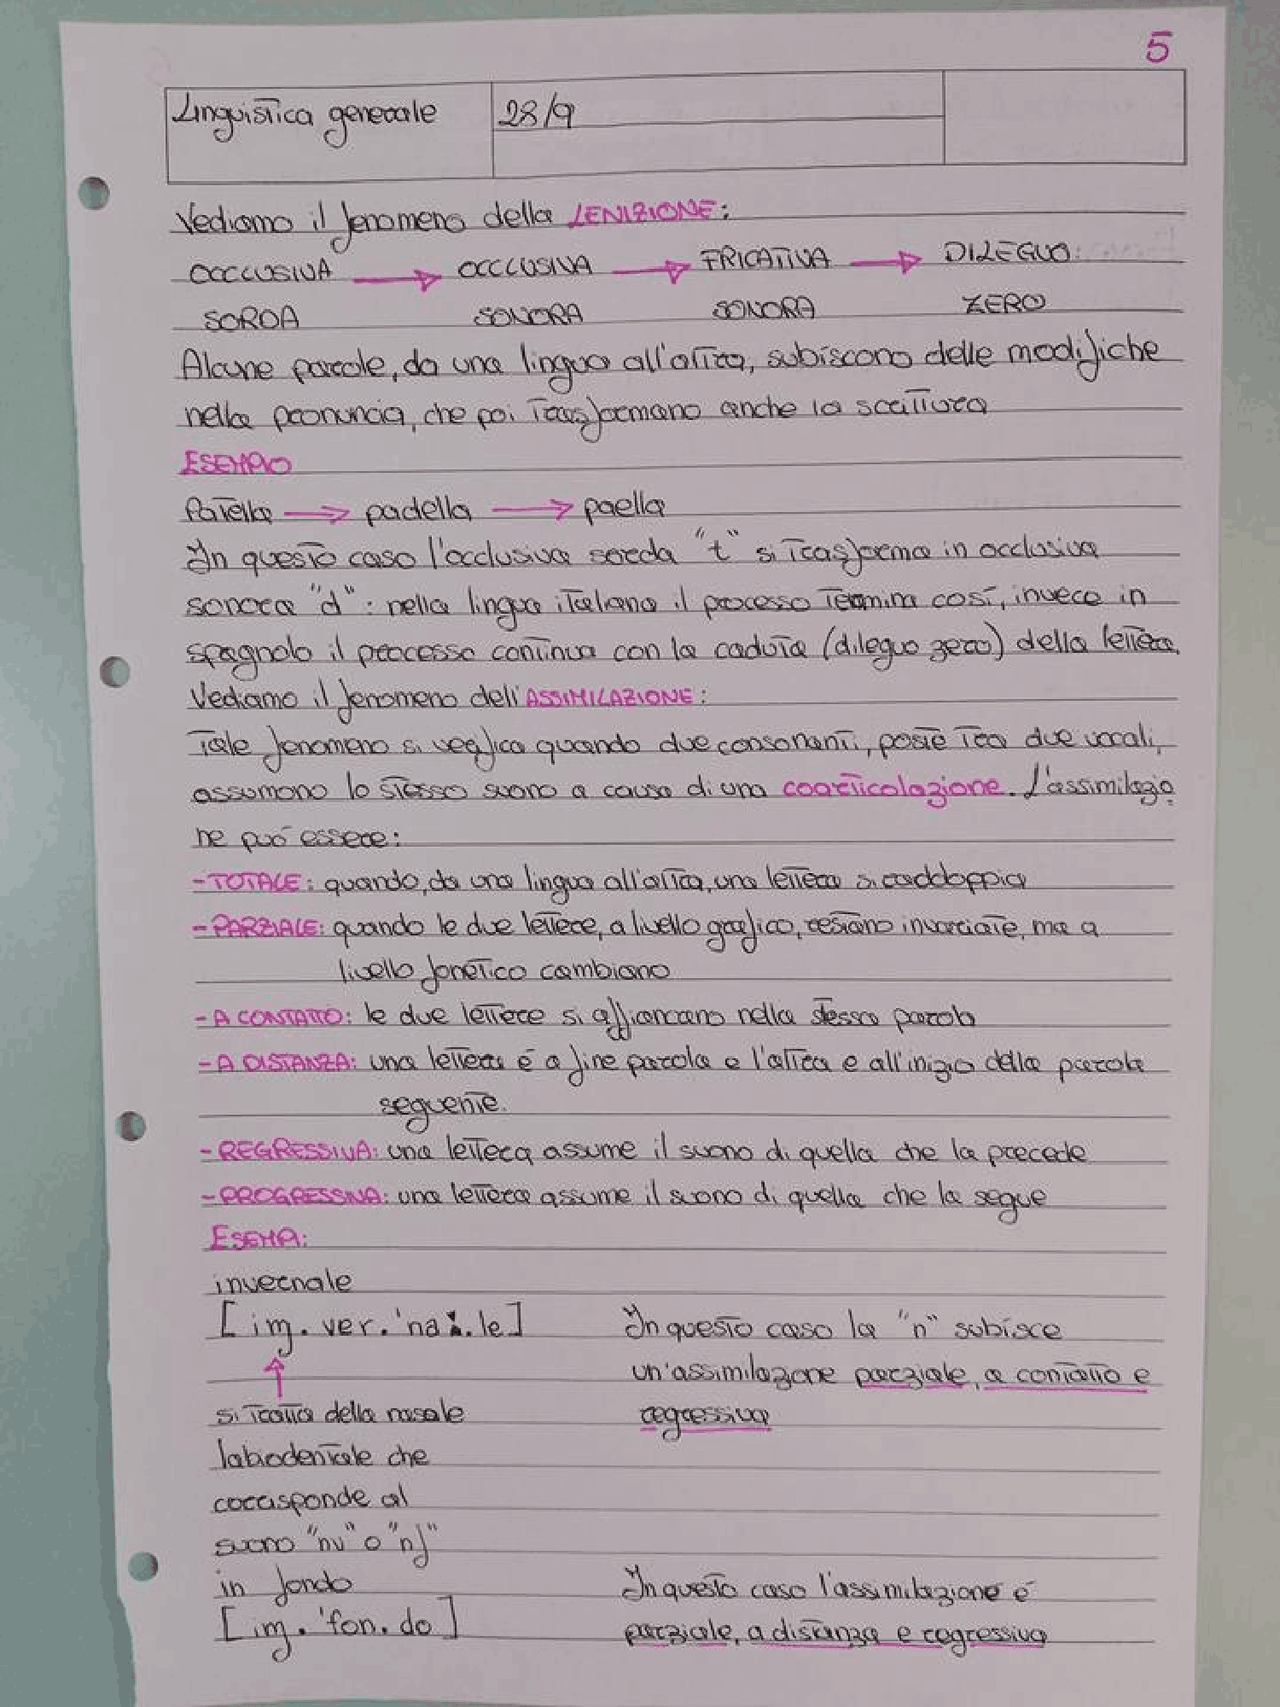 5
Linguistica generale 28/9
Vediamo il fenomeno della LENIZIONE:
OCCLUSIVA → OCCLUSIVA → FRICATIVA → DILEGUO
SORDA SONORA SONORA ZERO
Alcune parole, da una lingua all'altra, subiscono delle modifiche
nella pronuncia, che poi trasformano anche la scrittura
ESEMPIO
Patella → padella → paella
In questo caso l'occlusiva sorda "t" si trasforma in occlusiva
sonora "d": nella lingua italiana il processo termina così, invece in
spagnolo il processo continua con la caduta (dileguo zero) della lettera.
Vediamo il fenomeno dell'ASSIMILAZIONE:
Tale fenomeno si verifica quando due consonanti, poste tra due vocali,
assumono lo stesso suono a causa di una coarticolazione. L'assimilazio
ne può essere:
-TOTALE: quando, da una lingua all'altra, una lettera si raddoppia
-PARZIALE: quando le due lettere, a livello grafico, restano invariate, ma a
livello fonetico cambiano
-A CONTATTO: le due lettere si affiancano nella stessa parola
-A DISTANZA: una lettera è a fine parola e l'altra e all'inizio della parola
seguente.
-REGRESSIVA: una lettera assume il suono di quella che la precede
-PROGRESSIVA: una lettera assume il suono di quella che la segue
ESEMPI:
invernale
[iɱ.ver.'na:.le] In questo caso la "n" subisce
↑ un'assimilazione parziale, a contatto e
si tratta della nasale regressiva
labiodentale che
corrisponde al
suono "nv" o "nf"
in fondo In questo caso l'assimilazione è
[iɱ.'fon.do] parziale, a distanza e regressiva